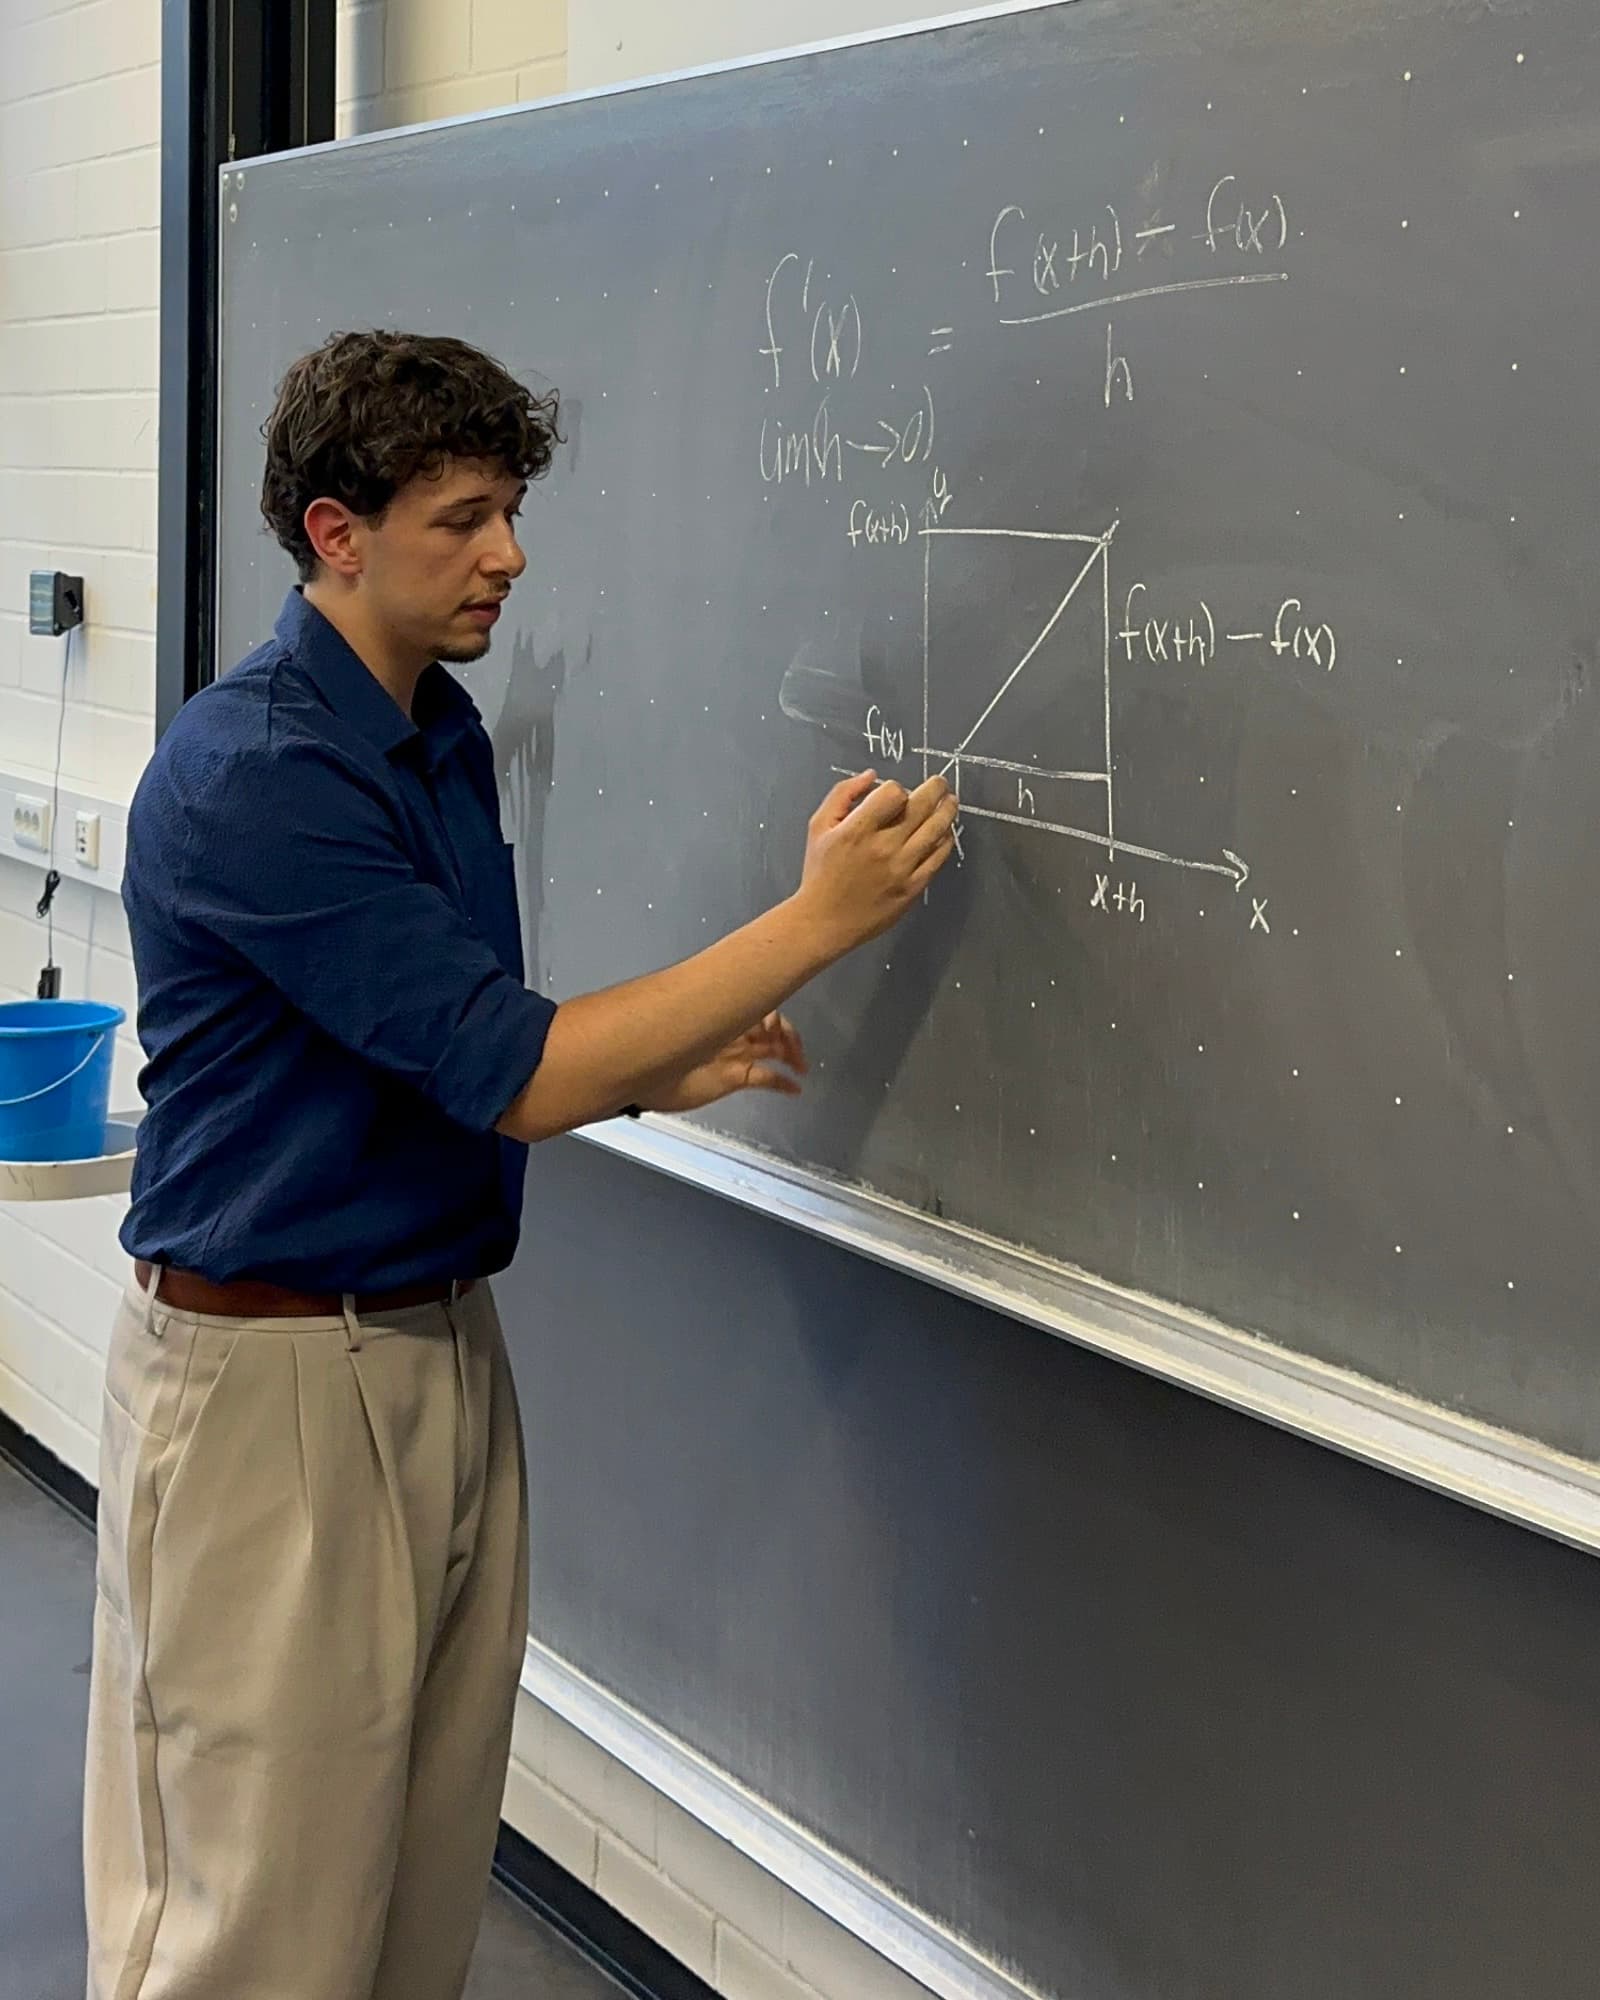 f'(x) = f(x+h) - f(x)
h
lim(h→0)
y
f(x+h)
f(x+h) - f(x)
f(x)
h
x
x+h
x